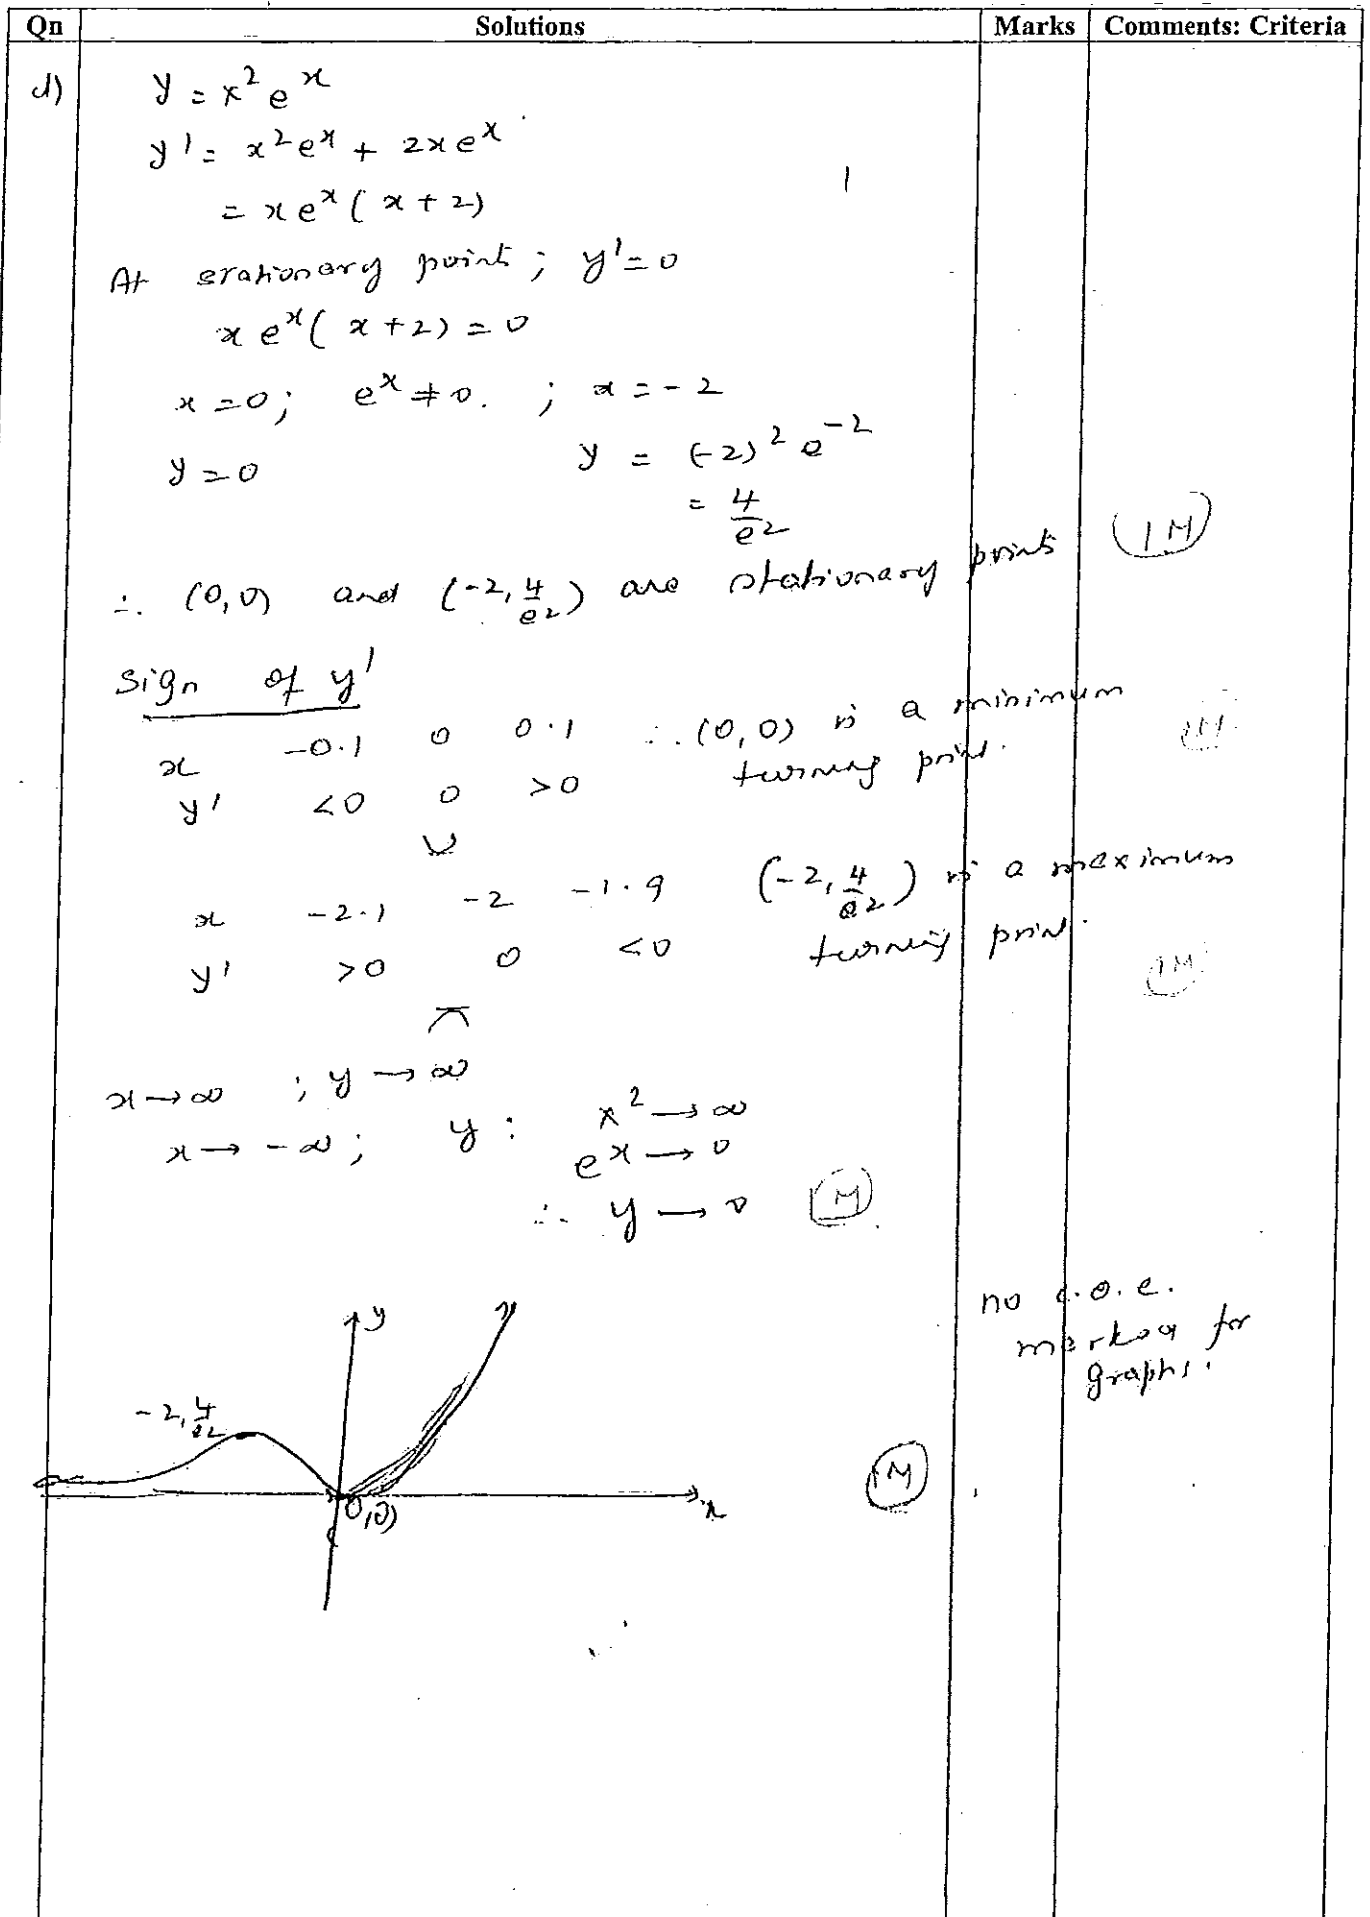 Qn Solutions Marks Comments: Criteria
d) y = x² eˣ
y' = x²eˣ + 2xeˣ
= xeˣ(x+2) 1
At stationary point; y'=0
xeˣ(x+2) = 0
x=0; eˣ ≠ 0. ; x = -2
y=0 y = (-2)² e⁻²
= 4/e²
∴ (0,0) and (-2, 4/e²) are stationary points (1M)
Sign of y'
x -0.1 0 0.1 ∴ (0,0) is a minimum
turning point.
y' <0 0 >0
x -2.1 -2 -1.9 (-2, 4/e²) is a maximum
turning point.
y' >0 0 <0 (1M)
x→∞ ; y→∞
x→ -∞; y: x²→∞
eˣ→0
∴ y→0 (1M)
no c.o.e.
marked for
graphs.
y
-2, 4/e²
(0,0) x (1M)